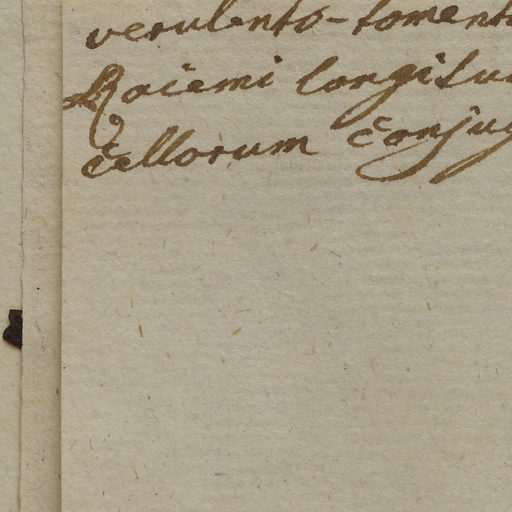 verulento-toment
Racemi longitu
cellorum conjug